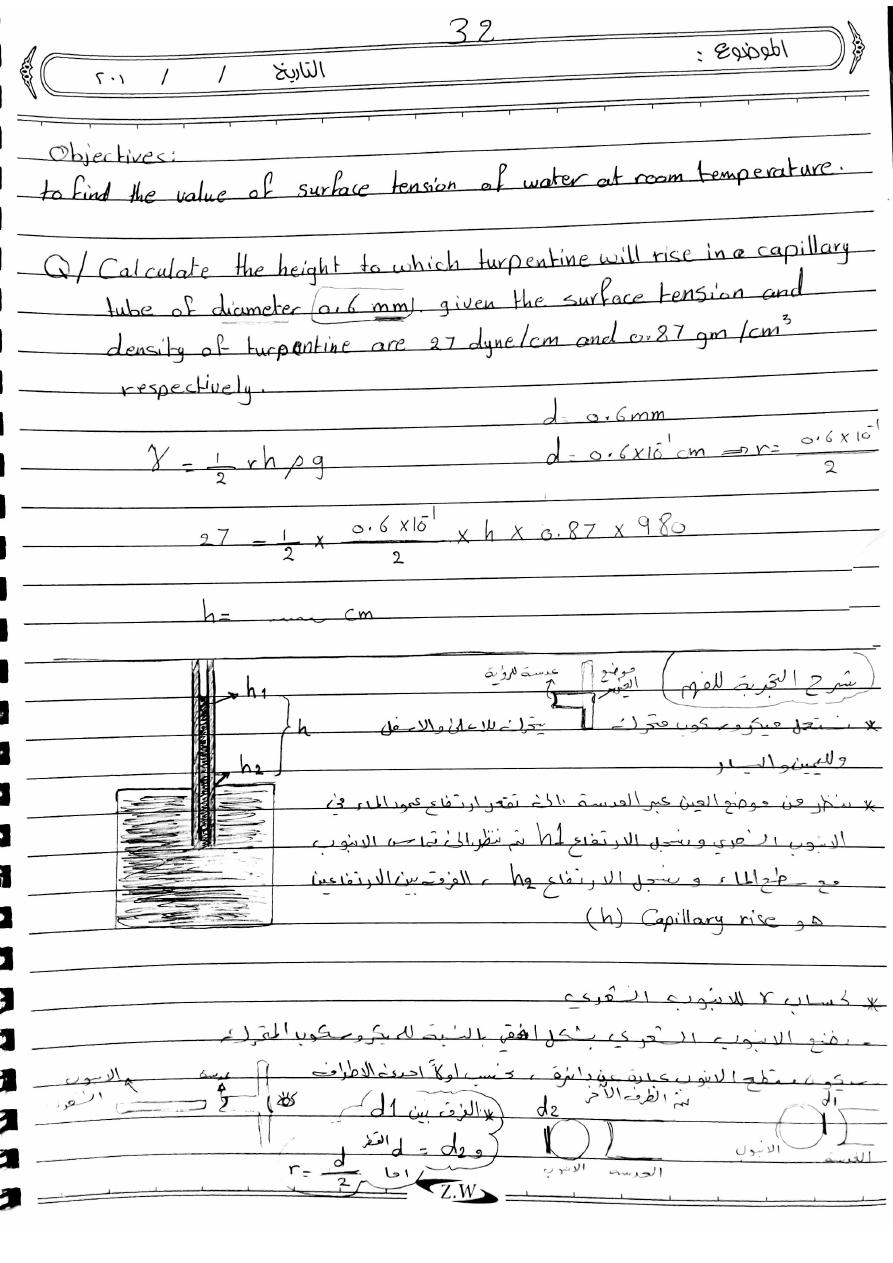 32
الموضوع :
التاريخ / / ٢٠١
Objectives:
to find the value of surface tension of water at room temperature.
Q/ Calculate the height to which turpentine will rise in a capillary
tube of diameter (0.6 mm). given the surface tension and
density of turpentine are 27 dyne/cm and 0.87 gm/cm³
respectively.
d = 0.6mm
γ = 1/2 r h ρ g
d = 0.6x10⁻¹ cm ⇒ r = 0.6 x 10⁻¹ / 2
27 = 1/2 x 0.6 x10⁻¹ / 2 x h x 0.87 x 980
h = ...... cm
شرح التجربة للفهم
موضع العين
عدسة للرؤية
h1
h
h2
* نستعمل ميكروسكوب متحرك يتحرك للاعلى والاسفل
ولليمين واليسار
* ننظر من موضع العين عبر العدسة الى تقعر ارتفاع عمود الماء في
الانبوب الشعري ونسجل الارتفاع h1 ثم ننظر الى تماس الانبوب
مع سطح الماء ونسجل الارتفاع h2 ، الفرق بين الارتفاعين
هو Capillary rise (h)
* لحساب r للانبوب الشعري
نضع الانبوب الشعري بشكل افقي بالنسبة للميكروسكوب المتحرك
سيكون مقطع الانبوب عبارة عن دائرة ، نحسب اولاً احدى الاطراف
ثم الطرف الآخر
الانبوب الشعري
عدسة
* الفرق بين d1
و d2 = d القطر
r = d/2
d2
الانبوب
العدسة
d1
الانبوب
العدسة
Z.W